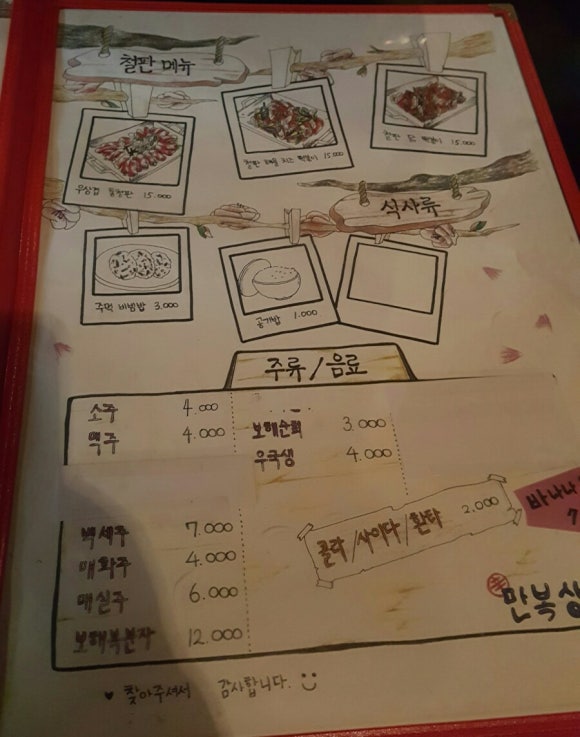 철판 메뉴
우삼겹 철판 15.000
철판 해물 치즈 떡볶이 15.000
철판 닭 떡볶이 15.000
식사류
주먹 비빔밥 3.000
공기밥 1.000
주류/음료
소주 4.000
맥주 4.000
보해순희 3.000
우국생 4.000
백세주 7.000
매화주 4.000
매실주 6.000
보해복분자 12.000
콜라/사이다/환타 2.000
바나나
7
만복상
♥ 찾아주셔서 감사합니다.